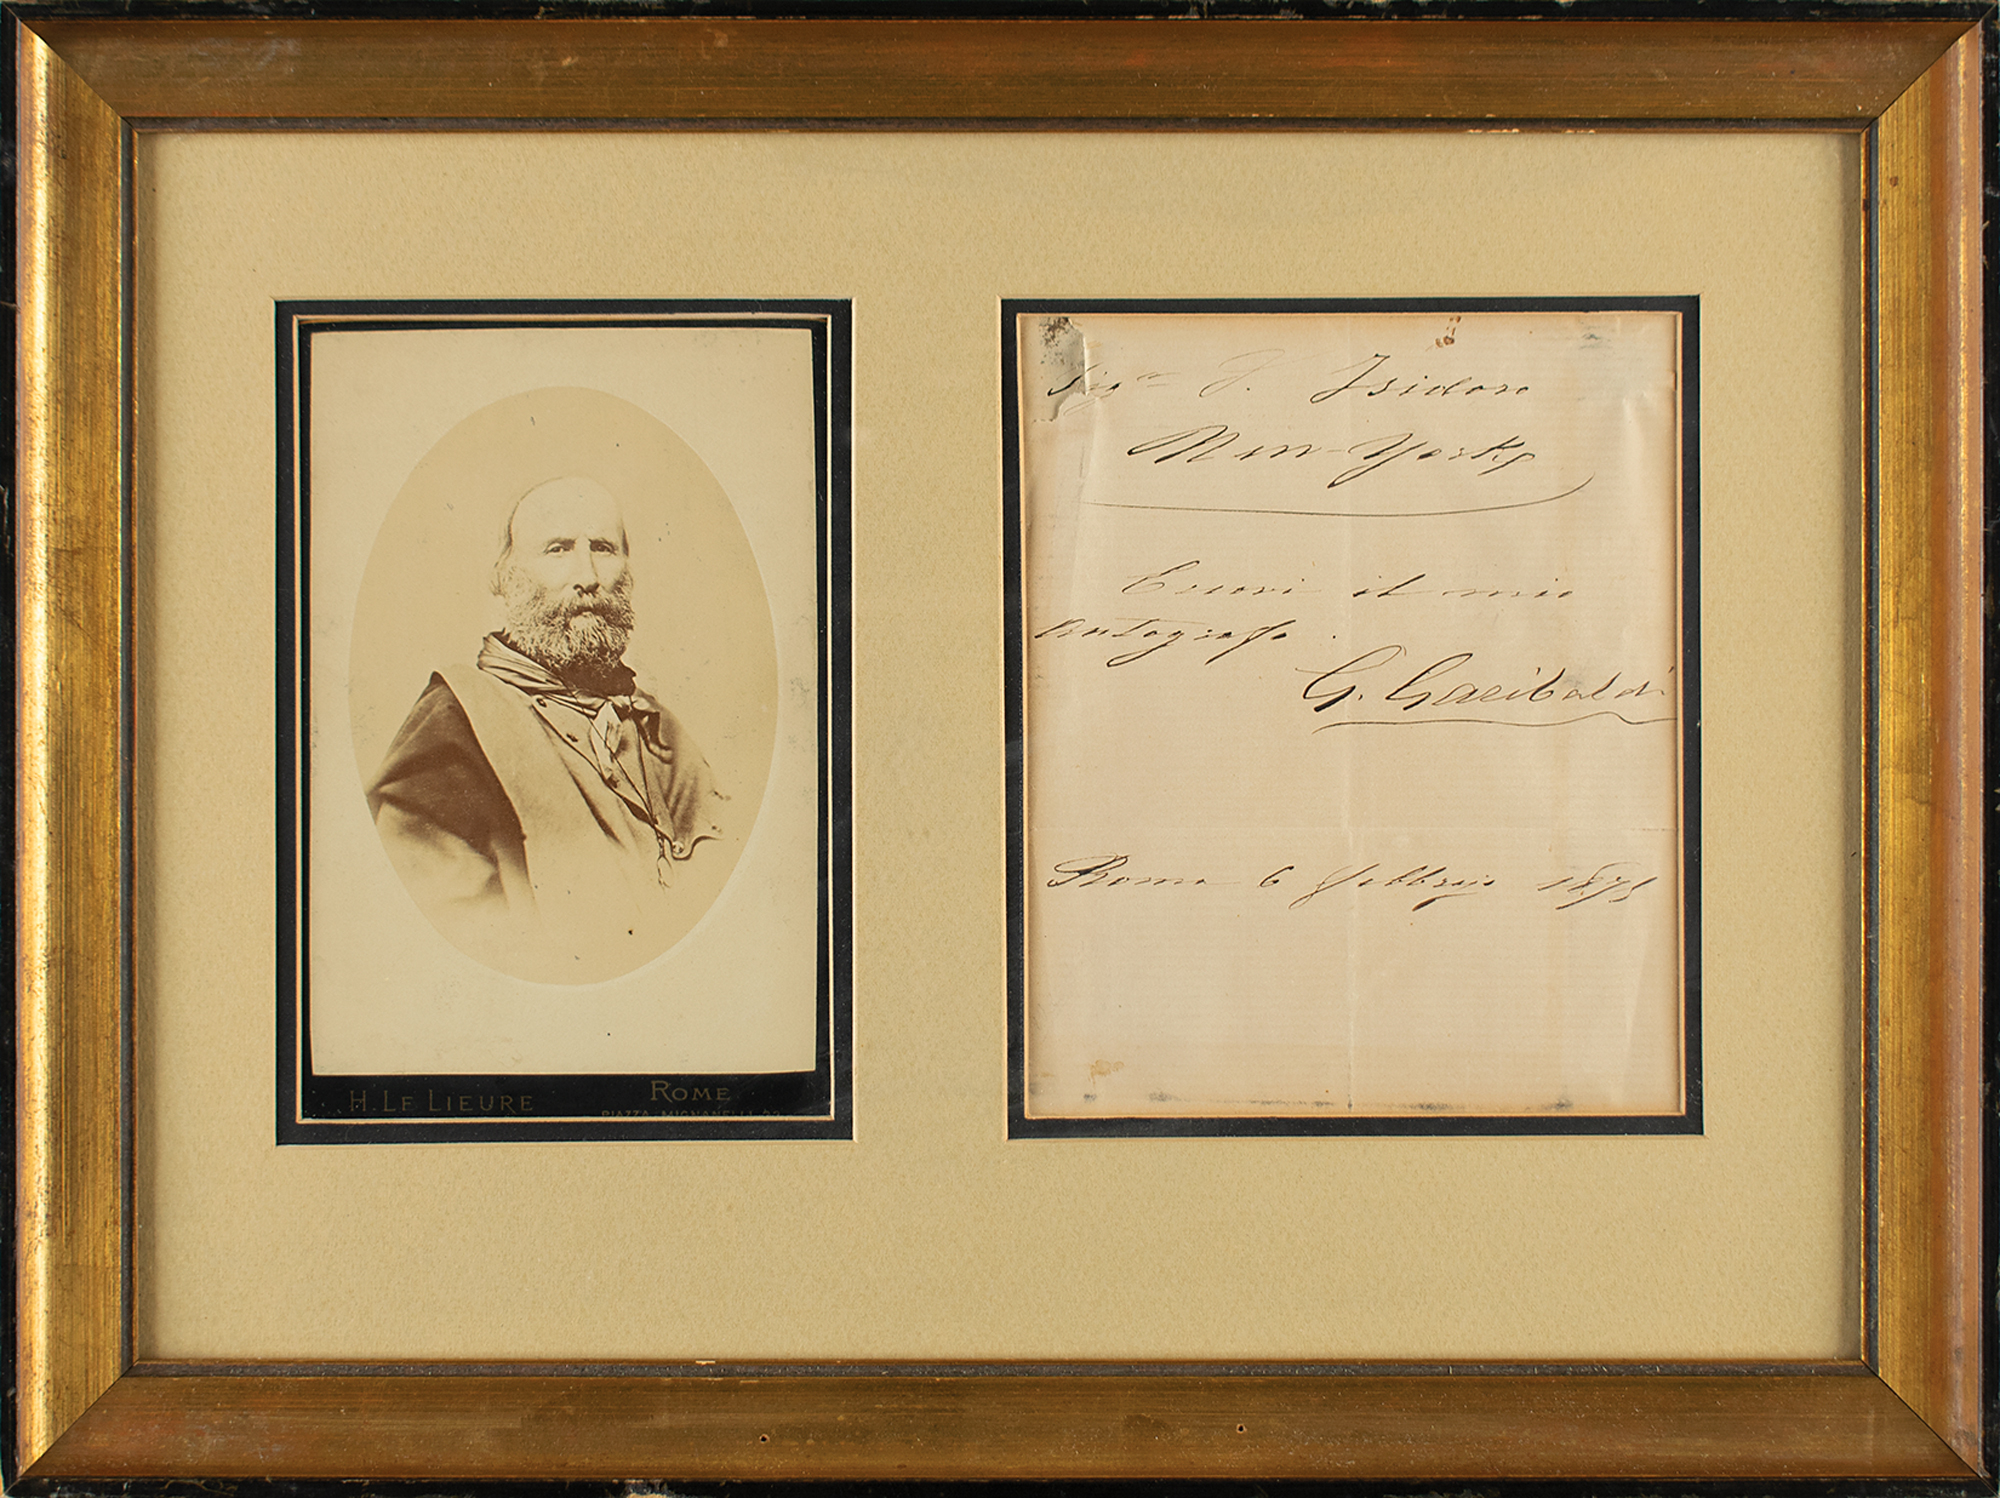 H. LE LIEURE
ROME
PIAZZA MIGNANELLI 23
Sigr J. Isidoro
New-York
Eccovi il mio
autografo.
G. Garibaldi
Roma 6 Febbrajo 1875